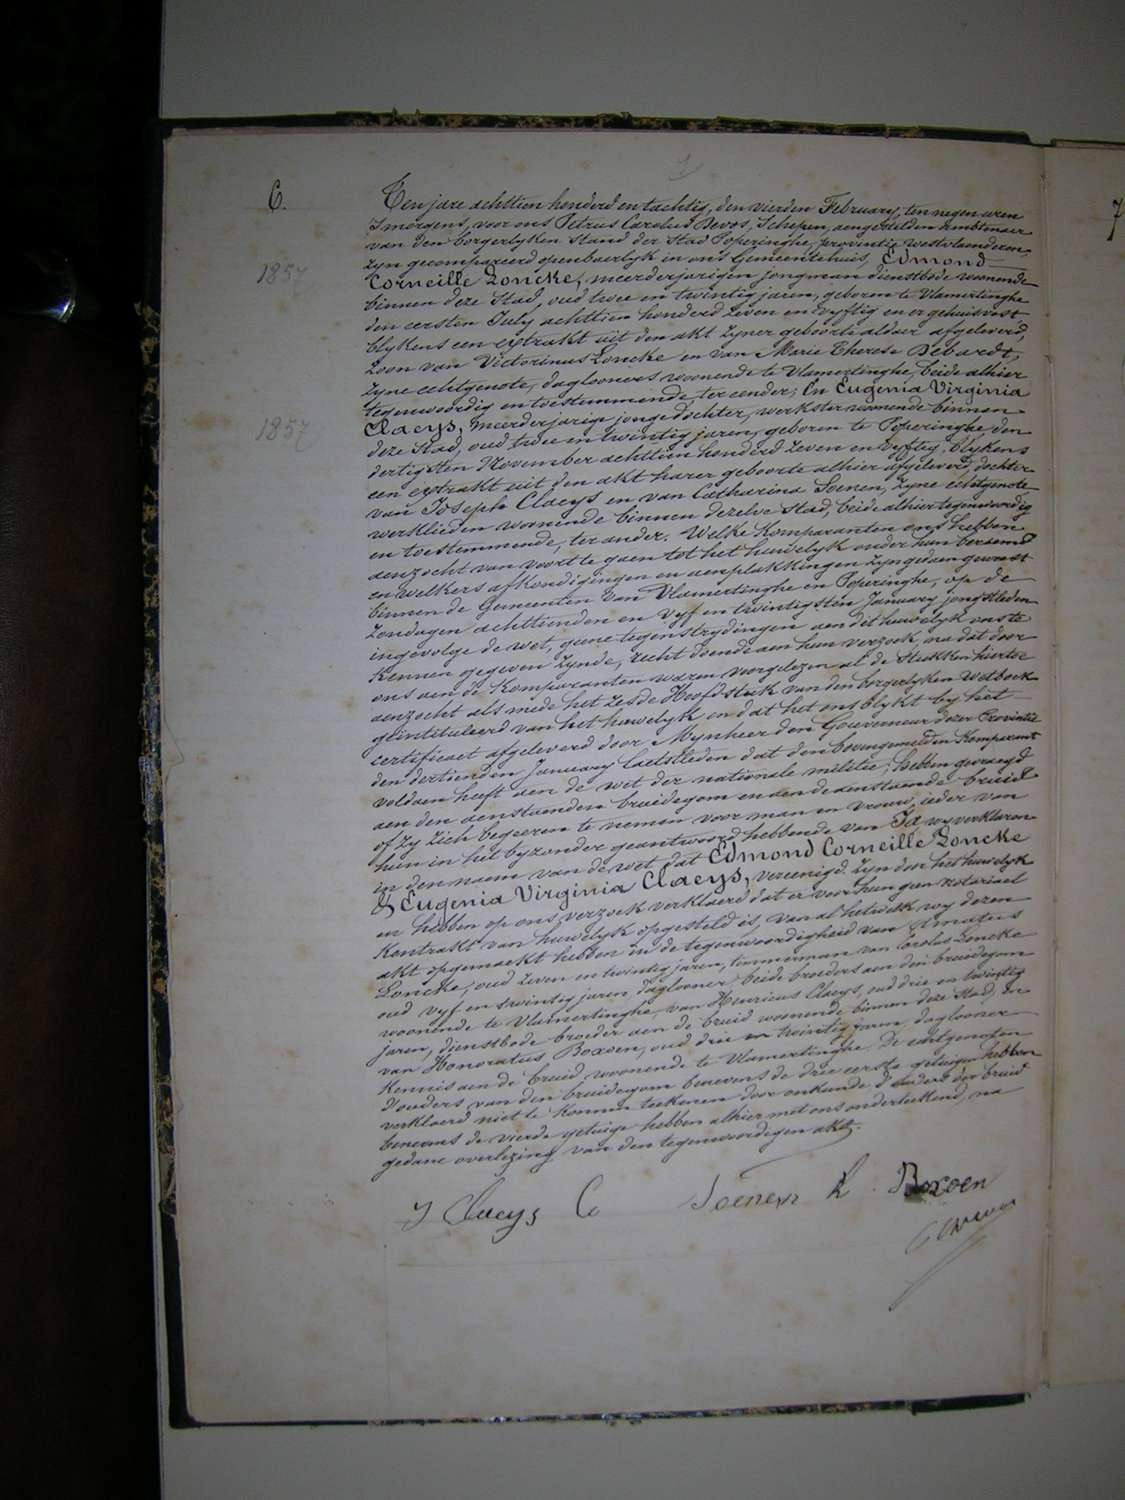 6.
Ten jare achttien honderd en tachtig, den vierden February, ten negen uren
Smorgens, voor ons Petrus Carolus Devos, Schepen, aengestelden ambtenaer
van den borgerlyken Stand der Stad Poperinghe, provintie Westvlaenderen
zyn gecompareerd openbaerlyk in ons Gemeentehuis, Edmond
1857
Corneille Loncke, meerderjarigen jongman dienstbode woonende
binnen deze Stad, oud twee en twintig jaren, geboren te Vlamertinghe
den eersten July achttien honderd zeven en vyftig en er gehuisvest
blykens een extrakt uit den akt zyner geboorte aldaer afgeleverd,
Zoon van Victorinus Loncke en van Marie Therese Debardt,
zyne echtgenote, daglooners woonende te Vlamertinghe, beide alhier
tegenwoordig en toestemmende, ter eender; En Eugenia Virginia
1857
Claeys, meerderjarige jonge dochter, werkster woonende binnen
deze Stad, oud twee en twintig jaren, geboren te Poperinghe den
dertigsten November achttien honderd zeven en vyftig, blykens
een extrakt uit den akt harer geboorte alhier afgeleverd, dochter
van Joseph Claeys en van Catharina Soenen, zyne echtgenote,
werklieden woonende binnen dezelve Stad, beide alhier tegenwoordig
en toestemmende, ter ander. Welke Komparanten ons hebben
aenzocht van voort te gaen tot het huwelyk onder hun beraemd
en welkers afkondigingen en aenplakkingen zyn gedaen geweest
binnen de Gemeenten van Vlamertinghe en Poperinghe, op de
Zondagen achttienden en vyf en twintigsten January jongstleden
ingevolge de wet, geene tegenstrydingen aen dit huwelyk ons te
kennen gegeven zynde, recht doende aen hun verzoek, na dat door
ons aen de Komparanten waren voorgelezen al de Stukken hiertoe
aenzocht als mede het zesde Hoofdstuk van den borgerlyken Wetboek
geïntituleerd van het huwelyk en dat het ons blykt by het
certificaet afgeleverd door Mynheer den Gouverneur dezer Provintie
den dertienden January laetstleden dat den bovengemelden Komparant
voldaen heeft aen de wet der nationale militie; hebben gevraegd
aen den aenstaenden bruidegom en aen de aenstaende bruid
of zy zich begeeren te nemen voor man en vrouw, ieder van
hun in het byzonder geantwoord hebbende van Ja wy verklaren
in den naem van de wet dat Edmond Corneille Loncke
& Eugenia Virginia Claeys, vereenigd zyn door het huwelyk
en hebben op ons verzoek verklaerd dat er voor hun geen notariael
Kontrakt van huwelyk opgesteld is, van al hetwelk wy dezen
akt opgemaekt hebben in de tegenwoordigheid van Amatus
Loncke, oud zeven en twintig jaren, timmerman van Carolus Loncke
oud vyf en twintig jaren daglooner, beide broeders aen den bruidegom
woonende te Vlamertinghe, van Henricus Claeys, oud drie en twintig
jaren, dienstbode broeder aen de bruid woonende binnen deze Stad, en
van Honoratus Boxoen, oud drie en twintig jaren, daglooner
Kennis aen de bruid woonende te Vlamertinghe. De echtgenoten
d'ouders van den bruidegom benevens de drie eerste getuigen hebben
verklaerd niet te konnen teekenen door onkunde d'ouders der bruid
benevens de vierde getuige hebben alhier met ons onderteekend, na
gedane overlezing van den tegenwoordigen akt.
J Claeys C Soenen h Boxoen
7